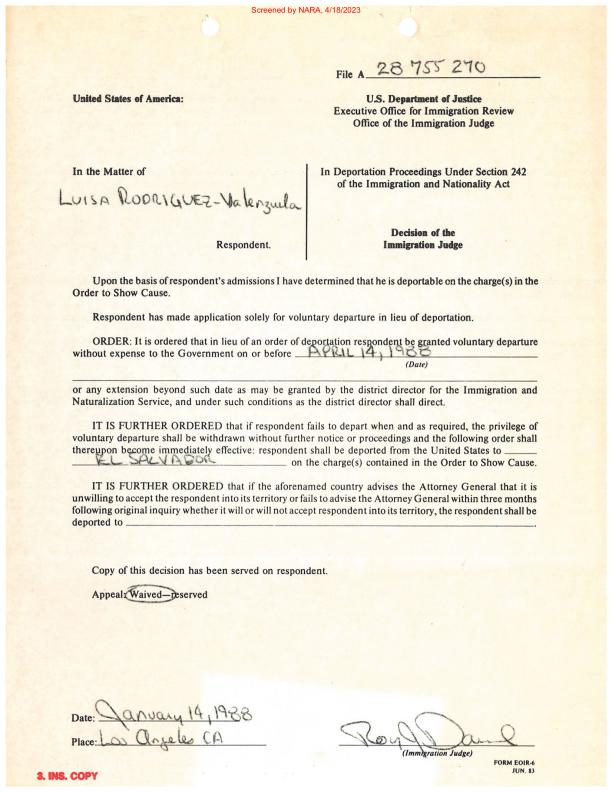 Screened by NARA, 4/18/2023
File A 28 755 270
United States of America:
U.S. Department of Justice
Executive Office for Immigration Review
Office of the Immigration Judge
In the Matter of
LUISA RODRIGUEZ-Valenzuela
Respondent.
In Deportation Proceedings Under Section 242
of the Immigration and Nationality Act
Decision of the
Immigration Judge
Upon the basis of respondent's admissions I have determined that he is deportable on the charge(s) in the
Order to Show Cause.
Respondent has made application solely for voluntary departure in lieu of deportation.
ORDER: It is ordered that in lieu of an order of deportation respondent be granted voluntary departure
without expense to the Government on or before APRIL 14, 1988
(Date)
or any extension beyond such date as may be granted by the district director for the Immigration and
Naturalization Service, and under such conditions as the district director shall direct.
IT IS FURTHER ORDERED that if respondent fails to depart when and as required, the privilege of
voluntary departure shall be withdrawn without further notice or proceedings and the following order shall
thereupon become immediately effective: respondent shall be deported from the United States to
EL SALVADOR on the charge(s) contained in the Order to Show Cause.
IT IS FURTHER ORDERED that if the aforenamed country advises the Attorney General that it is
unwilling to accept the respondent into its territory or fails to advise the Attorney General within three months
following original inquiry whether it will or will not accept respondent into its territory, the respondent shall be
deported to
Copy of this decision has been served on respondent.
Appeal: Waived—reserved
Date: January 14, 1988
Place: Los Angeles CA
(Immigration Judge)
FORM EOIR-6
JUN. 83
3. INS. COPY